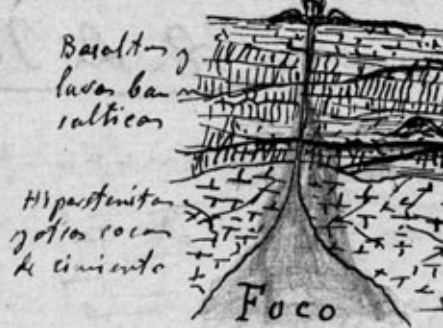 Basaltos y
lavas ba
salticas
Hiperstenitas
y otras rocas
de cimiento
Foco